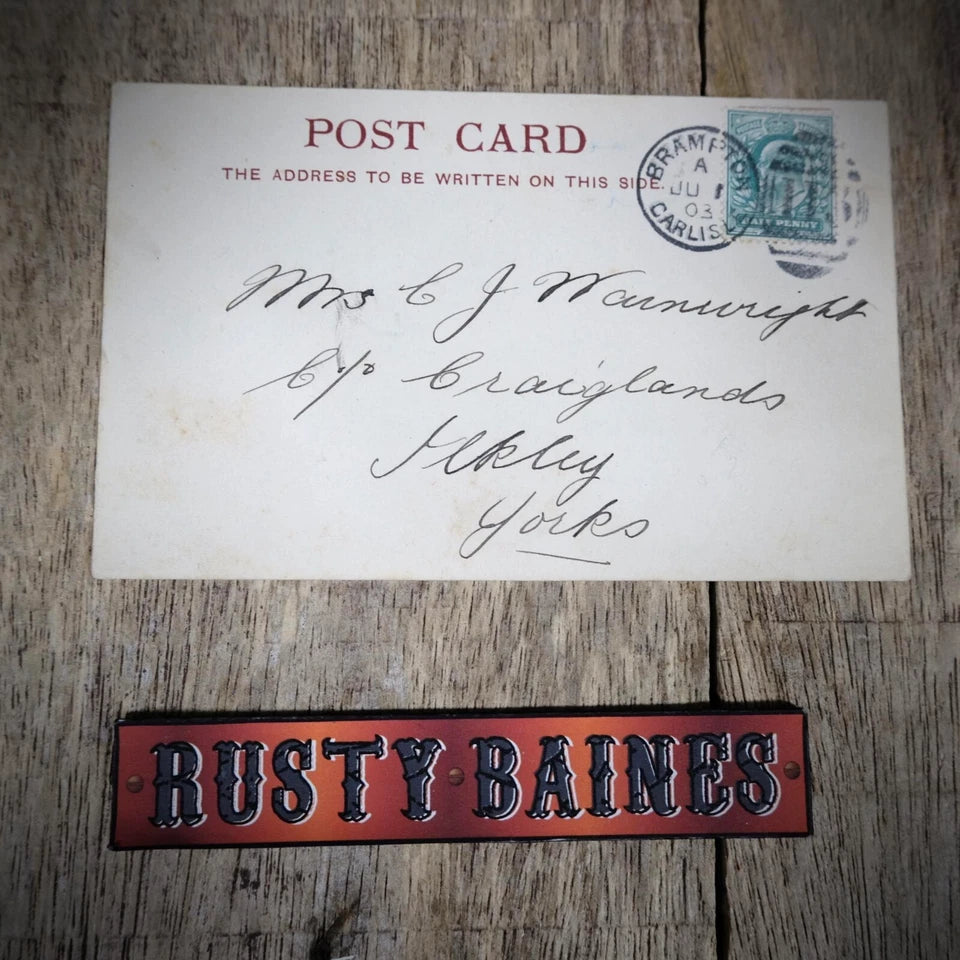 POST CARD
THE ADDRESS TO BE WRITTEN ON THIS SIDE.
BRAMPTON
A
JU 1
03
CARLIS
HALF PENNY
Mrs C J Wainwright
C/o Craiglands
Ilkley
Yorks
RUSTY BAINES